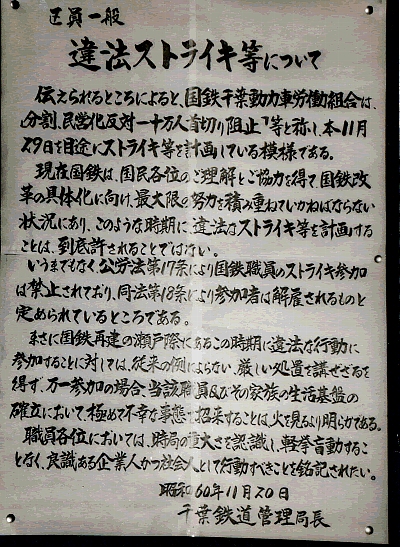 区員一般
違法ストライキ等について
伝えられるところによると、国鉄千葉動力車労働組合は、
「分割、民営化反対一十万人首切り阻止」等と称し、本11月
29日を目途にストライキ等を計画している模様である。
現在国鉄は、国民各位のご理解とご協力を得て、国鉄改
革の具体化に向け、最大限の努力を積み重ねていかねばならない
状況にあり、このような時期に違法なストライキ等を計画する
ことは、到底許されることではない。
いうまでもなく、公労法第17条により国鉄職員のストライキ参加
は禁止されており、同法第18条により参加者は解雇されるものと
定められているところである。
まさに国鉄再建の瀬戸際にあるこの時期に違法な行動に
参加することに対しては、従来の例によらない厳しい処置を講ぜざるを
得ず、万一参加の場合、当該職員及びその家族の生活基盤の
確立において、極めて不幸な事態を招来することは、火を見るより明らかである。
職員各位においては、時局の重大さを認識し、軽挙盲動するこ
となく、良識ある企業人かつ社会人として行動すべきことを銘記されたい。
昭和60年11月20日
千葉鉄道管理局長